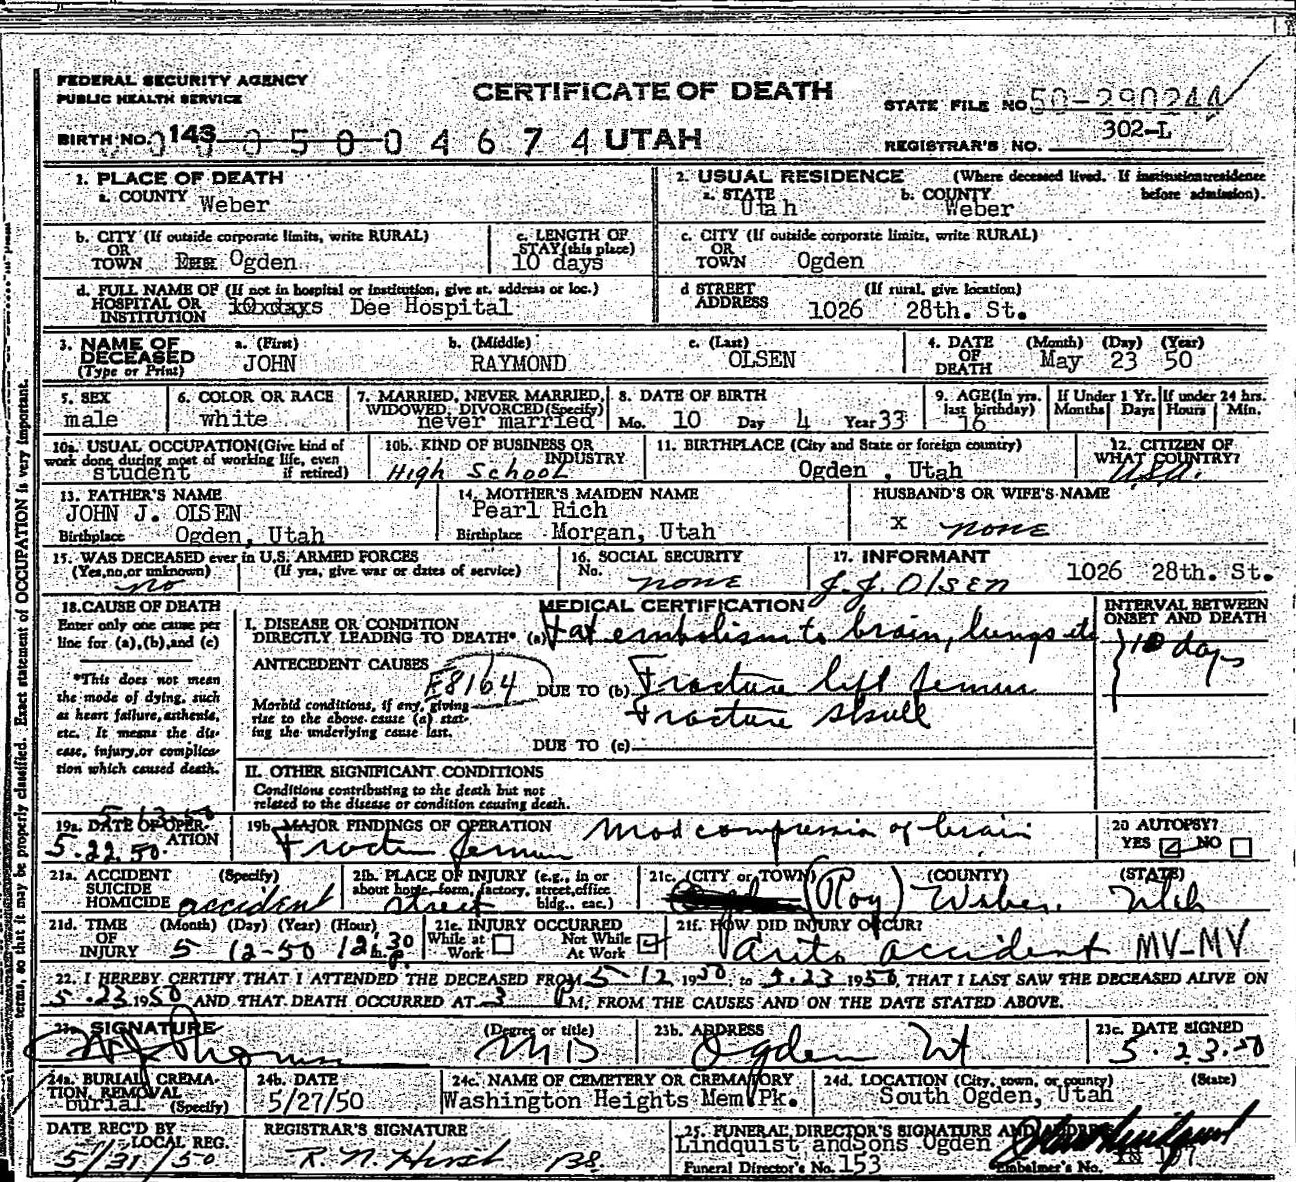 FEDERAL SECURITY AGENCY
PUBLIC HEALTH SERVICE
CERTIFICATE OF DEATH
STATE FILE NO. 50-290244
BIRTH NO. 143
0 0 0 5 0 0 0 4 6 7 4 UTAH
302-L
REGISTRAR'S NO.
1. PLACE OF DEATH
a. COUNTY Weber
2. USUAL RESIDENCE (Where deceased lived. If institution: residence before admission).
a. STATE Utah b. COUNTY Weber
b. CITY (If outside corporate limits, write RURAL) OR TOWN Ogden
c. LENGTH OF STAY (this place) 10 days
c. CITY (If outside corporate limits, write RURAL) OR TOWN Ogden
d. FULL NAME OF (If not in hospital or institution, give st. address or loc.) HOSPITAL OR INSTITUTION 10xdays Dee Hospital
d STREET ADDRESS (If rural, give location) 1026 28th. St.
3. NAME OF DECEASED (Type or Print) a. (First) JOHN b. (Middle) RAYMOND c. (Last) OLSEN
4. DATE OF DEATH (Month) (Day) (Year) May 23 50
5. SEX male
6. COLOR OR RACE white
7. MARRIED, NEVER MARRIED, WIDOWED, DIVORCED (Specify) never married
8. DATE OF BIRTH Mo. 10 Day 4 Year 33
9. AGE (In yrs. last birthday) 16
If Under 1 Yr. Months Days
If under 24 hrs. Hours Min.
10a. USUAL OCCUPATION (Give kind of work done during most of working life, even if retired) student
10b. KIND OF BUSINESS OR INDUSTRY High School
11. BIRTHPLACE (City and State or foreign country) Ogden, Utah
12. CITIZEN OF WHAT COUNTRY? U.S.A.
13. FATHER'S NAME JOHN J. OLSEN
Birthplace Ogden, Utah
14. MOTHER'S MAIDEN NAME Pearl Rich
Birthplace Morgan, Utah
HUSBAND'S OR WIFE'S NAME
x none
15. WAS DECEASED ever in U.S. ARMED FORCES (Yes, no, or unknown) (If yes, give war or dates of service) no
16. SOCIAL SECURITY No. none
17. INFORMANT J.J. Olsen 1026 28th. St.
18. CAUSE OF DEATH
Enter only one cause per line for (a), (b), and (c)
*This does not mean the mode of dying, such as heart failure, asthenia, etc. It means the disease, injury, or complication which caused death.
MEDICAL CERTIFICATION
INTERVAL BETWEEN ONSET AND DEATH
I. DISEASE OR CONDITION DIRECTLY LEADING TO DEATH*. (a) Fat embolism to brain, lungs etc
10 days
ANTECEDENT CAUSES E8164 DUE TO (b) Fracture left femur
Fracture skull
Morbid conditions, if any, giving rise to the above cause (a) stating the underlying cause last.
DUE TO (c)
II. OTHER SIGNIFICANT CONDITIONS
Conditions contributing to the death but not related to the disease or condition causing death.
19a. DATE OF OPERATION 5-13-50
5.22.50
19b. MAJOR FINDINGS OF OPERATION Mod compression of brain
Fracture femur
20 AUTOPSY? YES NO
21a. ACCIDENT SUICIDE HOMICIDE (Specify) accident
21b. PLACE OF INJURY (e.g., in or about home, farm, factory, street, office bldg., etc.) street
21c. (CITY or TOWN) (COUNTY) (STATE)
(Roy) Weber. Utah
21d. TIME OF INJURY (Month) (Day) (Year) (Hour) 5 12-50 12 30 P.
21e. INJURY OCCURRED While at Work Not While At Work
21f. HOW DID INJURY OCCUR? Auto accident MV-MV
22. I HEREBY CERTIFY THAT I ATTENDED THE DECEASED FROM 5-12 1950 to 5.23 1950, THAT I LAST SAW THE DECEASED ALIVE ON
5.23 1950 AND THAT DEATH OCCURRED AT 3 P M, FROM THE CAUSES AND ON THE DATE STATED ABOVE.
23a. SIGNATURE (Degree or title) MD
23b. ADDRESS Ogden Ut
23c. DATE SIGNED 5.23.50
24a. BURIAL, CREMATION, REMOVAL (Specify) burial
24b. DATE 5/27/50
24c. NAME OF CEMETERY OR CREMATORY Washington Heights Mem. Pk.
24d. LOCATION (City, town, or county) (State) South Ogden, Utah
DATE REC'D BY LOCAL REG. 5/31/50
REGISTRAR'S SIGNATURE R. N. Hirst
25. FUNERAL DIRECTOR'S SIGNATURE AND ADDRESS
Lindquist and Sons Ogden
Funeral Director's No. 153
Embalmer's No.